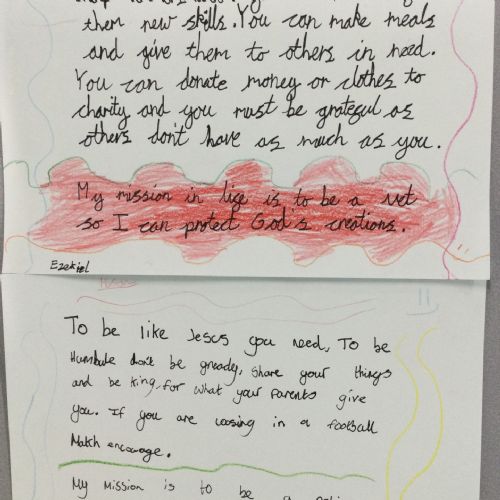 them new skills. You can make meals
and give them to others in need.
You can donate money or clothes to
charity and you must be grateful as
others don't have as much as you.
My mission in life is to be a vet
so I can protect God's creations.
Ezekiel
To be like Jesus you need, To be
Humbule don't be gready, share your things
and be king, for what your Parents give
you. If you are loosing in a football
Match encourage.
My Mission is to be a